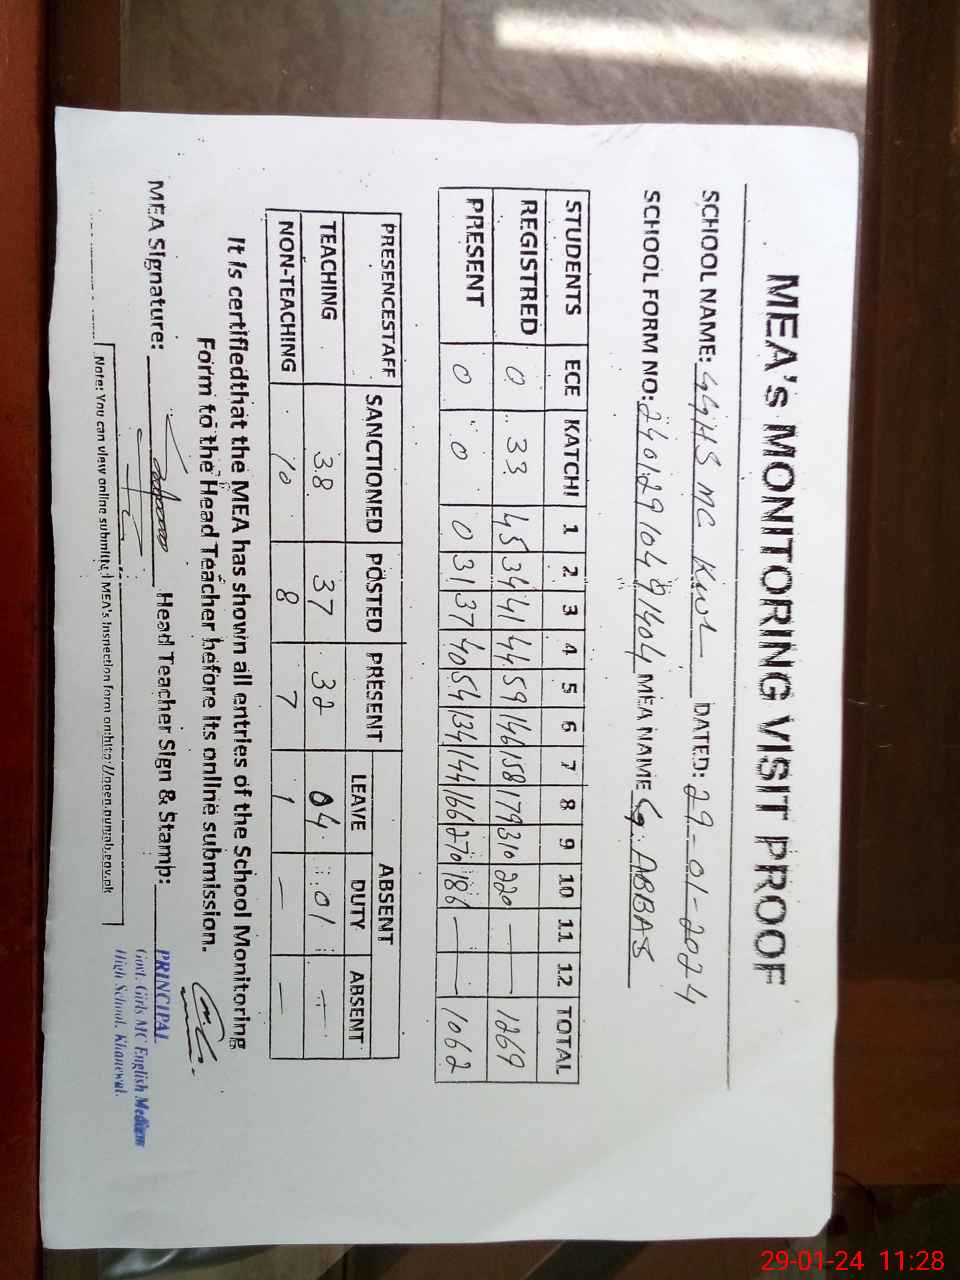 MEA's MONITORING VISIT PROOF
SCHOOL NAME: GGHS MC Kwl DATED: 29-01-2024
SCHOOL FORM NO: 240129104891404 MEA NAME G. ABBAS
STUDENTS ECE KATCHI 1 2 3 4 5 6 7 8 9 10 11 12 TOTAL
REGISTRED 0 33 45 34 41 44 59 146 158 179 310 220 — — 1269
PRESENT 0 0 0 31 37 40 54 134 144 166 270 186 — — 1062
PRESENCESTAFF SANCTIONED POSTED PRESENT ABSENT
LEAVE DUTY ABSENT
TEACHING 38 37 32 04 01 —
NON-TEACHING 10 8 7 1 — —
It is certifiedthat the MEA has shown all entries of the School Monitoring
Form to the Head Teacher before its online submission.
MEA Signature: Head Teacher Sign & Stamp:
PRINCIPAL
Govt. Girls MC English Medium
High School, Khanewal.
Note: You can view online submitted MEA's Inspection form on:http://open.punjab.gov.pk
29-01-24 11:28